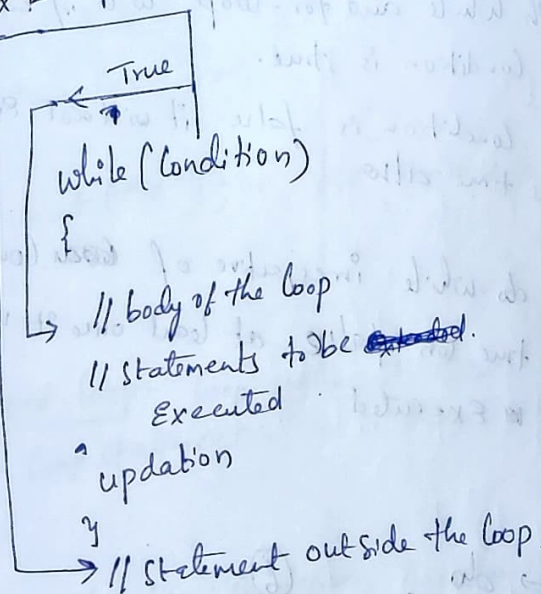 True
while (Condition)
{
// body of the loop
// Statements to be
Executed
updation
}
// Statement outside the loop